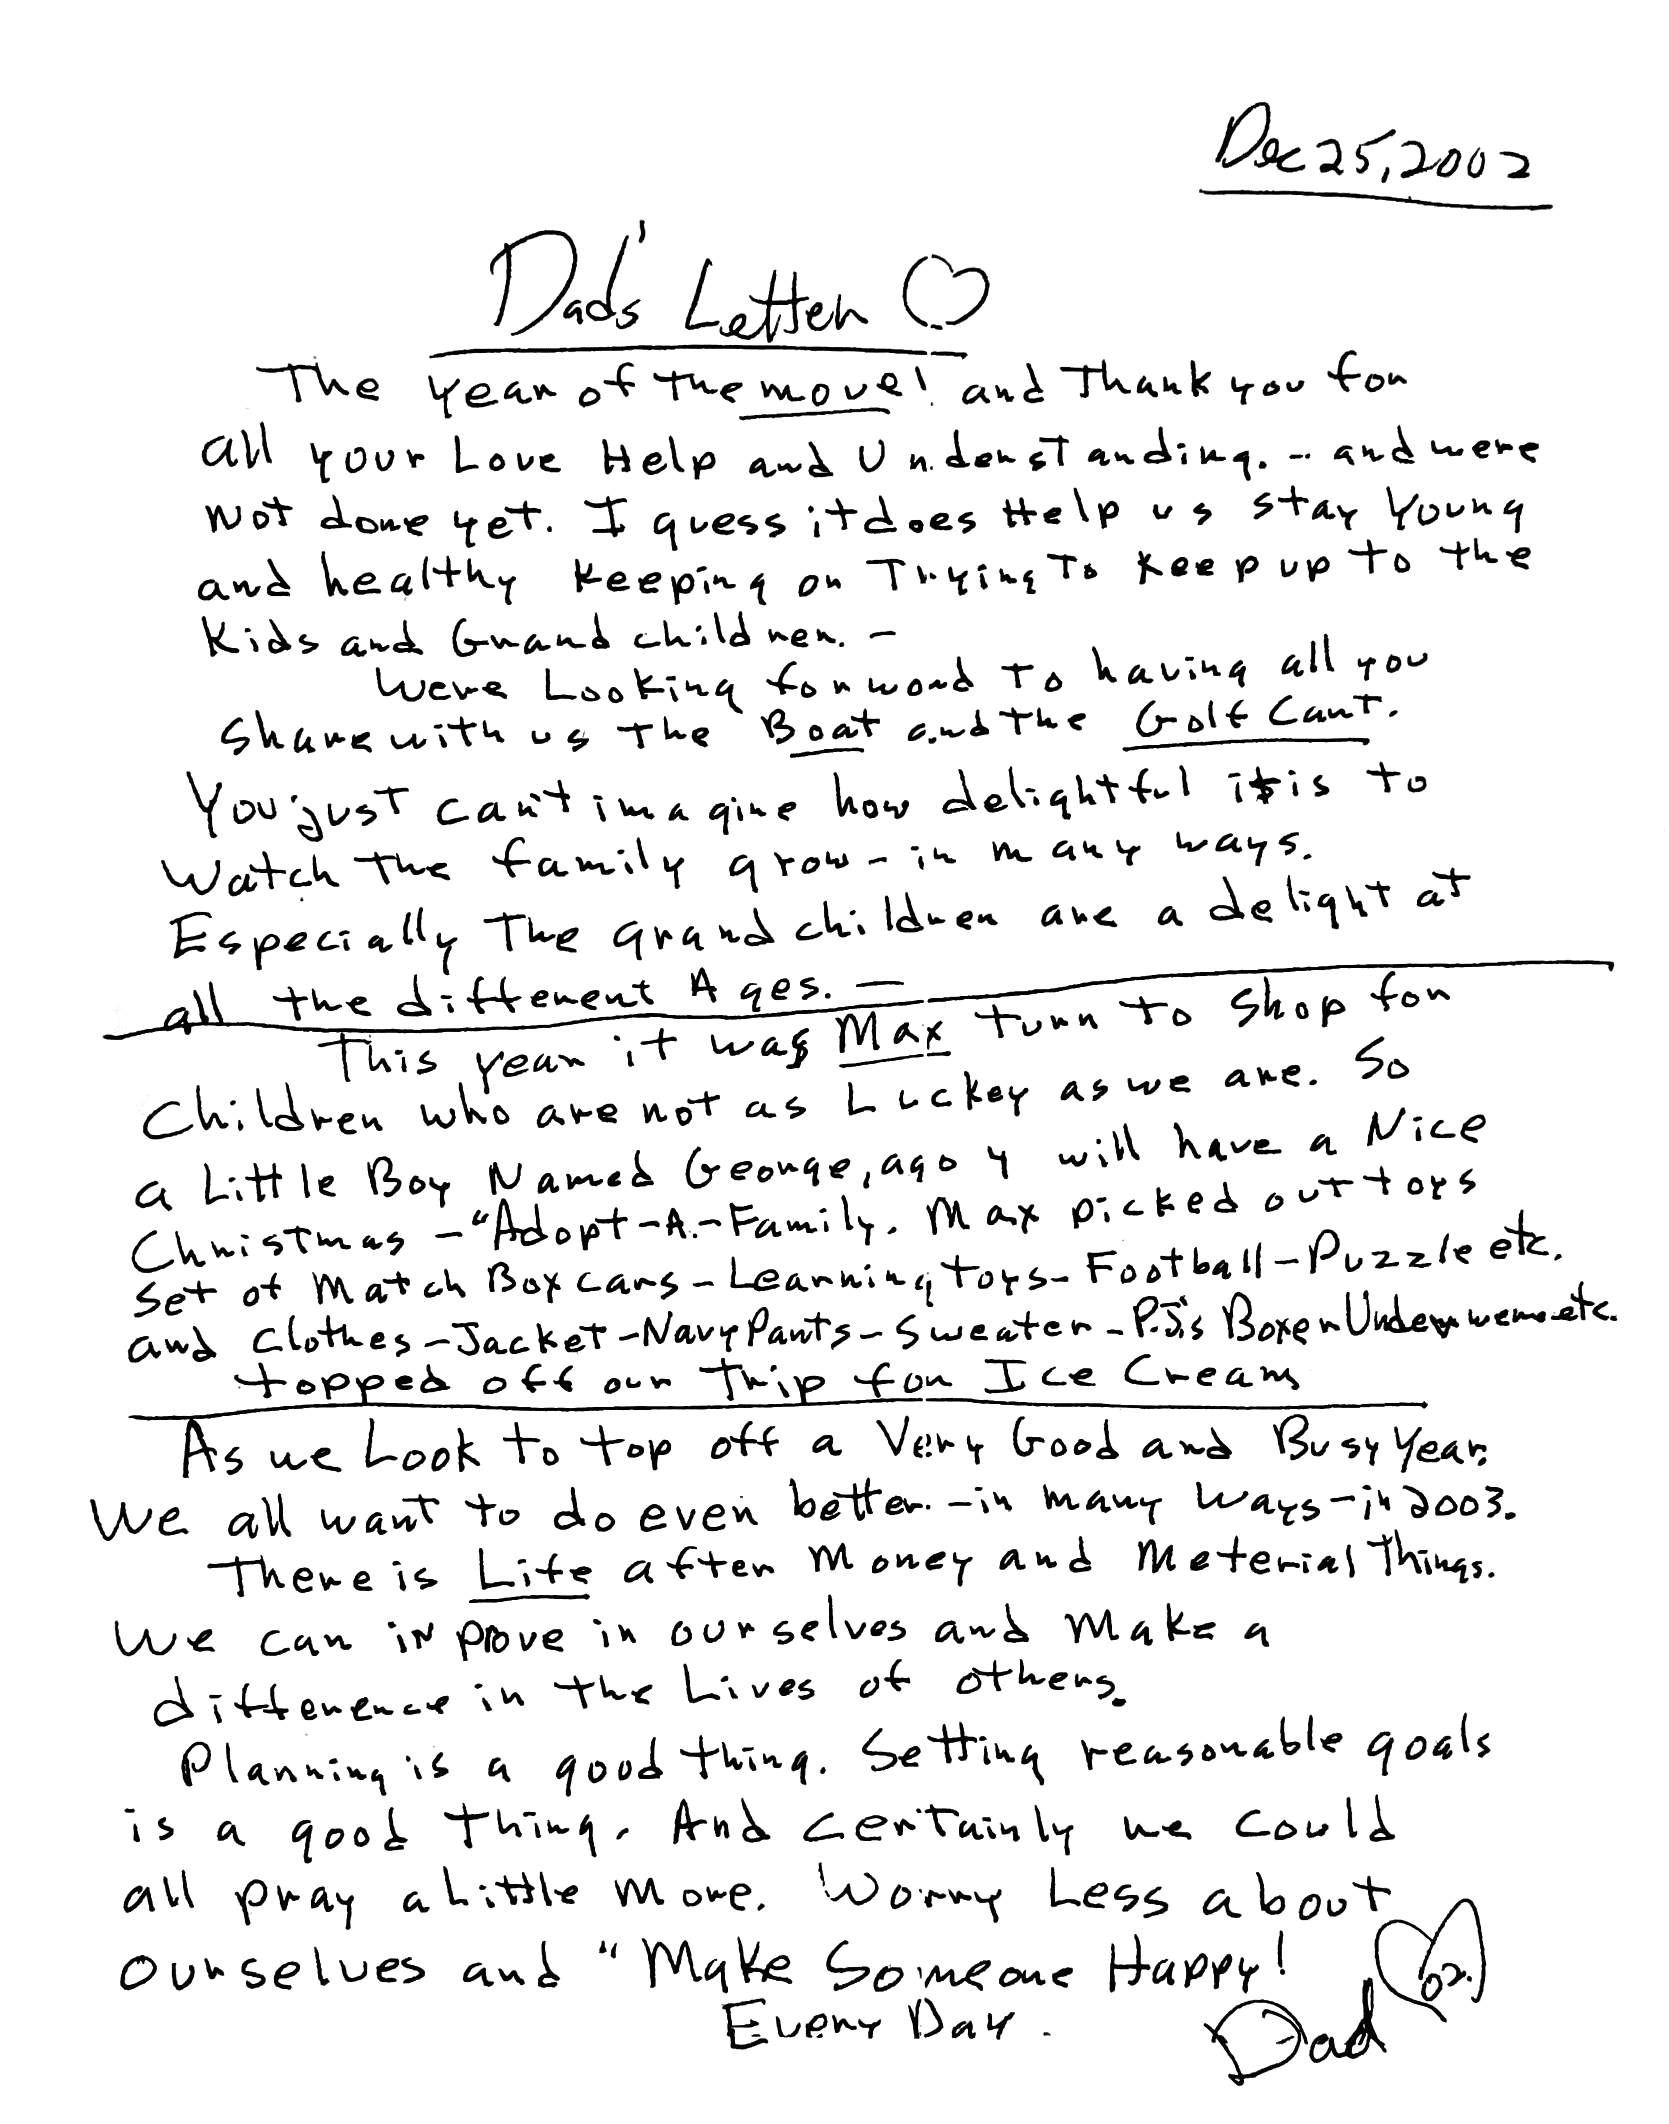 Dec 25, 2002
Dad's Letter ♡
The year of the move! and Thank you for
all your Love Help and Understanding. - and were
not done yet. I guess it does Help us stay Young
and healthy Keeping on Trying To Keep up to the
Kids and Grandchildren. -
Were Looking forword To having all you
Share with us The Boat and the Golf Cart.
You just can't imagine how delightful it is to
Watch The family grow - in many ways.
Especially The grandchildren are a delight at
all the different Ages. -
This year it was Max turn to shop for
Children who are not as Luckey as we are. So
a Little Boy Named George, age 4 will have a Nice
Christmas - "Adopt-A-Family. Max picked out toys
Set of Match Box cars - Learning toys - Football - Puzzle etc.
and Clothes - Jacket - Navy Pants - Sweater - P.J.'s Boxer Underwere etc.
topped off our Trip for Ice Cream
As we Look to top off a Very Good and Busy Year.
We all want to do even better. - in many Ways - in 2003.
There is Life after Money and Meterial Things.
We can inprove in ourselves and Make a
difference in the Lives of others.
Planning is a good thing. Setting reasonable goals
is a good thing. And certainly we could
all pray a Little More. Worry Less about
Ourselves and "Make Someone Happy!
Every Day.
Dad 02.